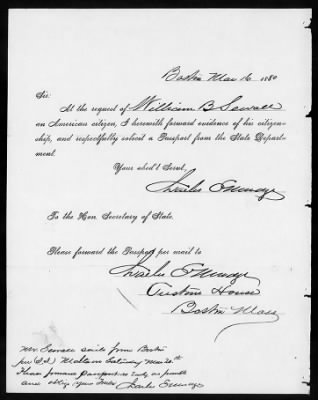 Boston Mar 16 1880
Sir:
At the request of William B Sewall
an American citizen, I herewith forward evidence of his citizen-
ship, and respectfully solicit a Passport from the State Depart-
ment.
Your obed't Servt,
Charles
To the Hon. Secretary of State.
Please forward the Passport per mail to
Charles
Custom House
Boston Mass
Mr. Sewall sails from Boston
per S.S. Saturday Mar 20th
Please forward Passport as early as possible
and oblige Yours Truly Charles